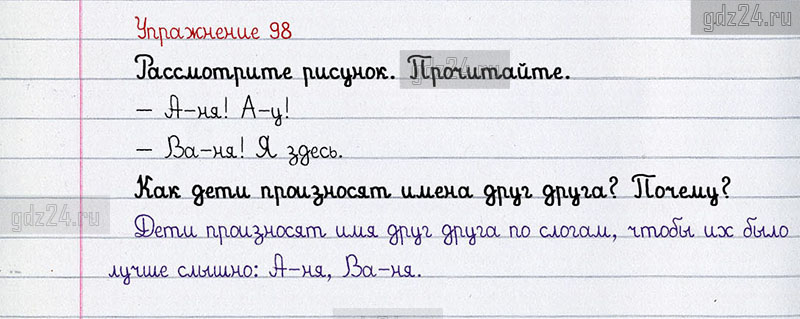 Упражнение 98
gdz24.ru
Рассмотрите рисунок. Прочитайте.
gdz24.ru
– А-ня! А-у!
– Ва-ня! Я здесь.
Как дети произносят имена друг друга? Почему?
gdz24.ru
Дети произносят имя друг друга по слогам, чтобы их было
лучше слышно: А-ня, Ва-ня.